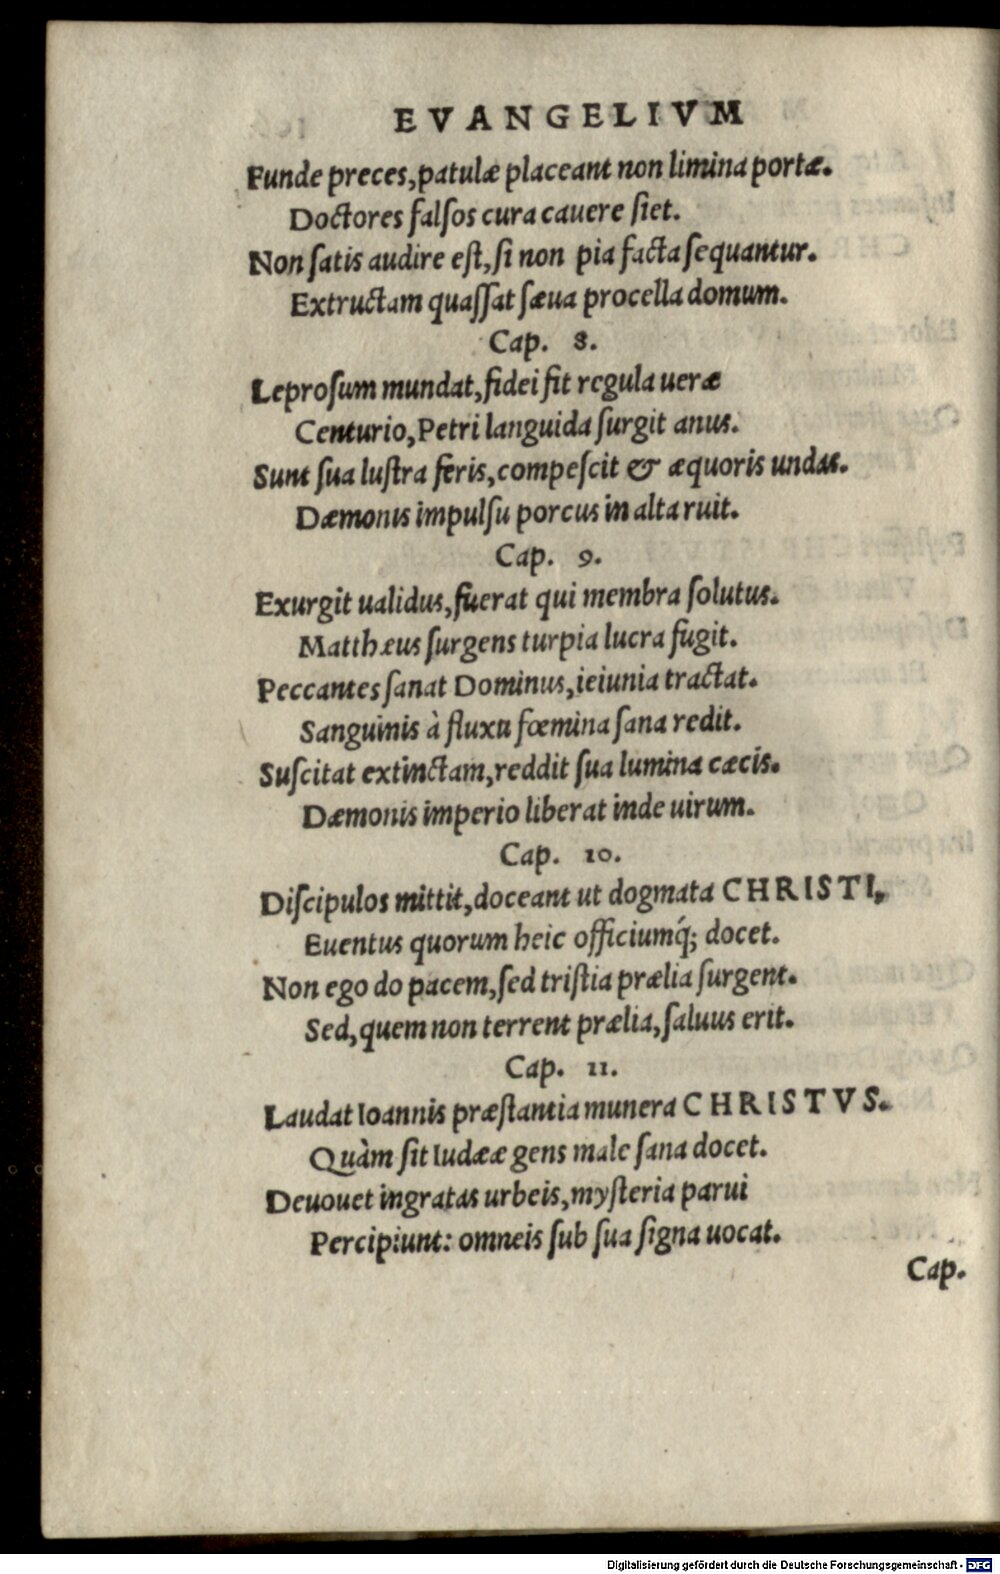 EVANGELIVM
Funde preces, patulæ placeant non limina portæ.
Doctores falſos cura cauere ſiet.
Non ſatis audire eſt, ſi non pia facta ſequantur.
Extructam quaſſat ſæua procella domum.
Cap. 8.
Leproſum mundat, fidei fit regula ueræ
Centurio, Petri languida ſurgit anus.
Sunt ſua luſtra feris, compeſcit & æquoris undas.
Dæmonis impulſu porcus in alta ruit.
Cap. 9.
Exurgit ualidus, fuerat qui membra ſolutus.
Matthæus ſurgens turpia lucra fugit.
Peccantes ſanat Dominus, ieiunia tractat.
Sanguinis à fluxu fœmina ſana redit.
Suſcitat extinctam, reddit ſua lumina cæcis.
Dæmonis imperio liberat inde uirum.
Cap. 10.
Diſcipulos mittit, doceant ut dogmata CHRISTI,
Euentus quorum heic officiumq́; docet.
Non ego do pacem, ſed triſtia prælia ſurgent.
Sed, quem non terrent prælia, ſaluus erit.
Cap. 11.
Laudat Ioannis præſtantia munera CHRISTVS.
Quàm ſit Iudææ gens male ſana docet.
Deuouet ingratas urbeis, myſteria parui
Percipiunt: omneis ſub ſua ſigna uocat.
Cap.
Digitalisierung gefördert durch die Deutsche Forschungsgemeinschaft - DFG